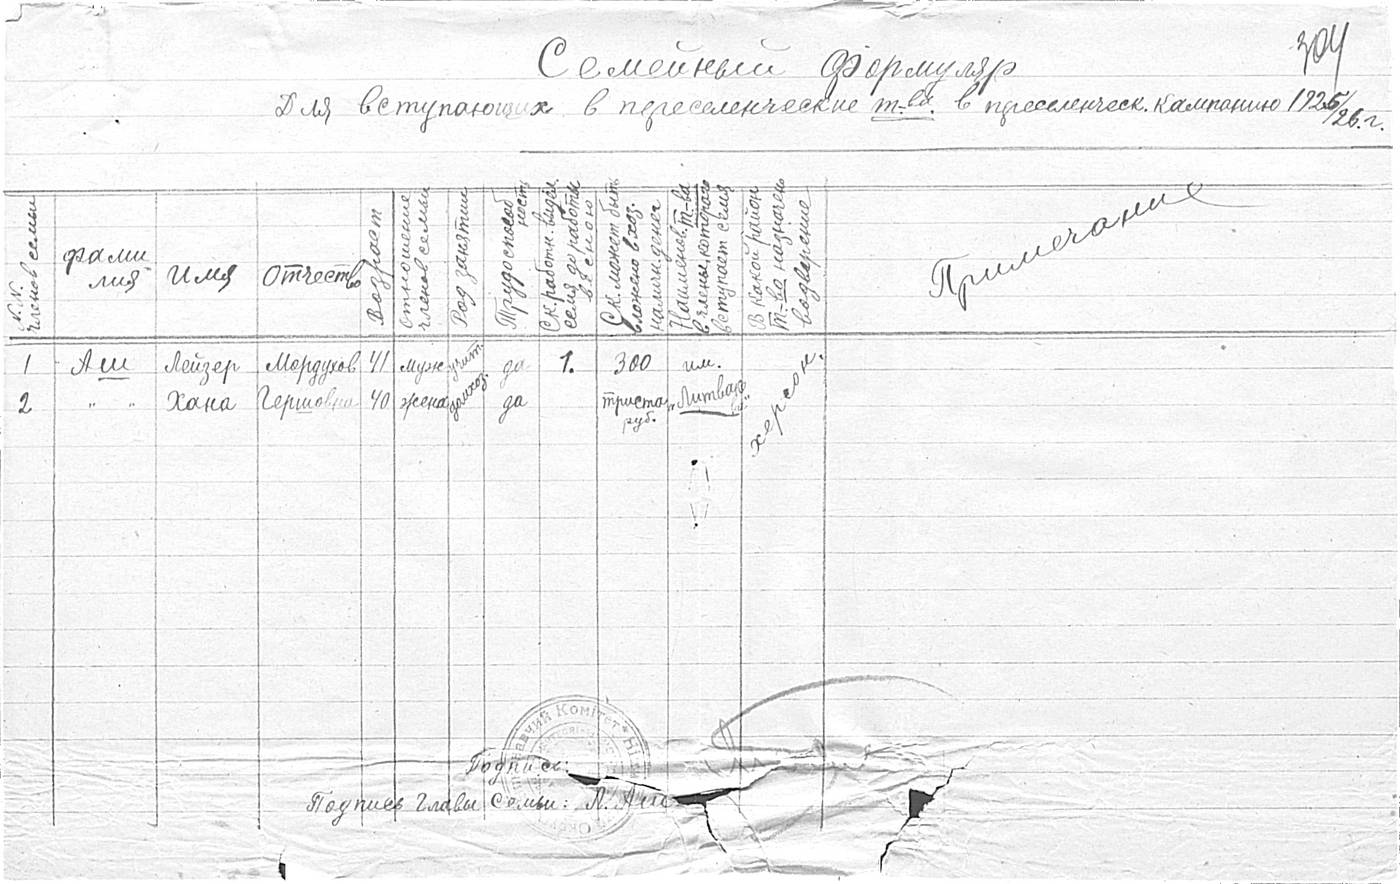 304
Семейный Формуляр
Для вступающих в переселенческие т-ва. в переселенческ. кампанию 1925/26. г.
№.№. членов семьи
Фами
лия
Имя
Отчество
Возраст
Отношение
членов семьи
Род занятия
Трудоспособ
ность
Ск. работн. выдел.
семья до работы
Ск. может быть
вложено в хоз.
наличн. денег
Наименов. т-ва
в члены которого
вступает семья
В какой район
т-ва назначено
водворение
Примечание
1 Аш Лейзер Мордухов 41 муж учит. да 1. 300 им. херсон.
2 " " Хана Гершовна 40 жена домхоз. да триста „Литвакова“
руб.
Подпись:
Подпись Главы Семьи: Л. Аш
навчий Комітет
Окру